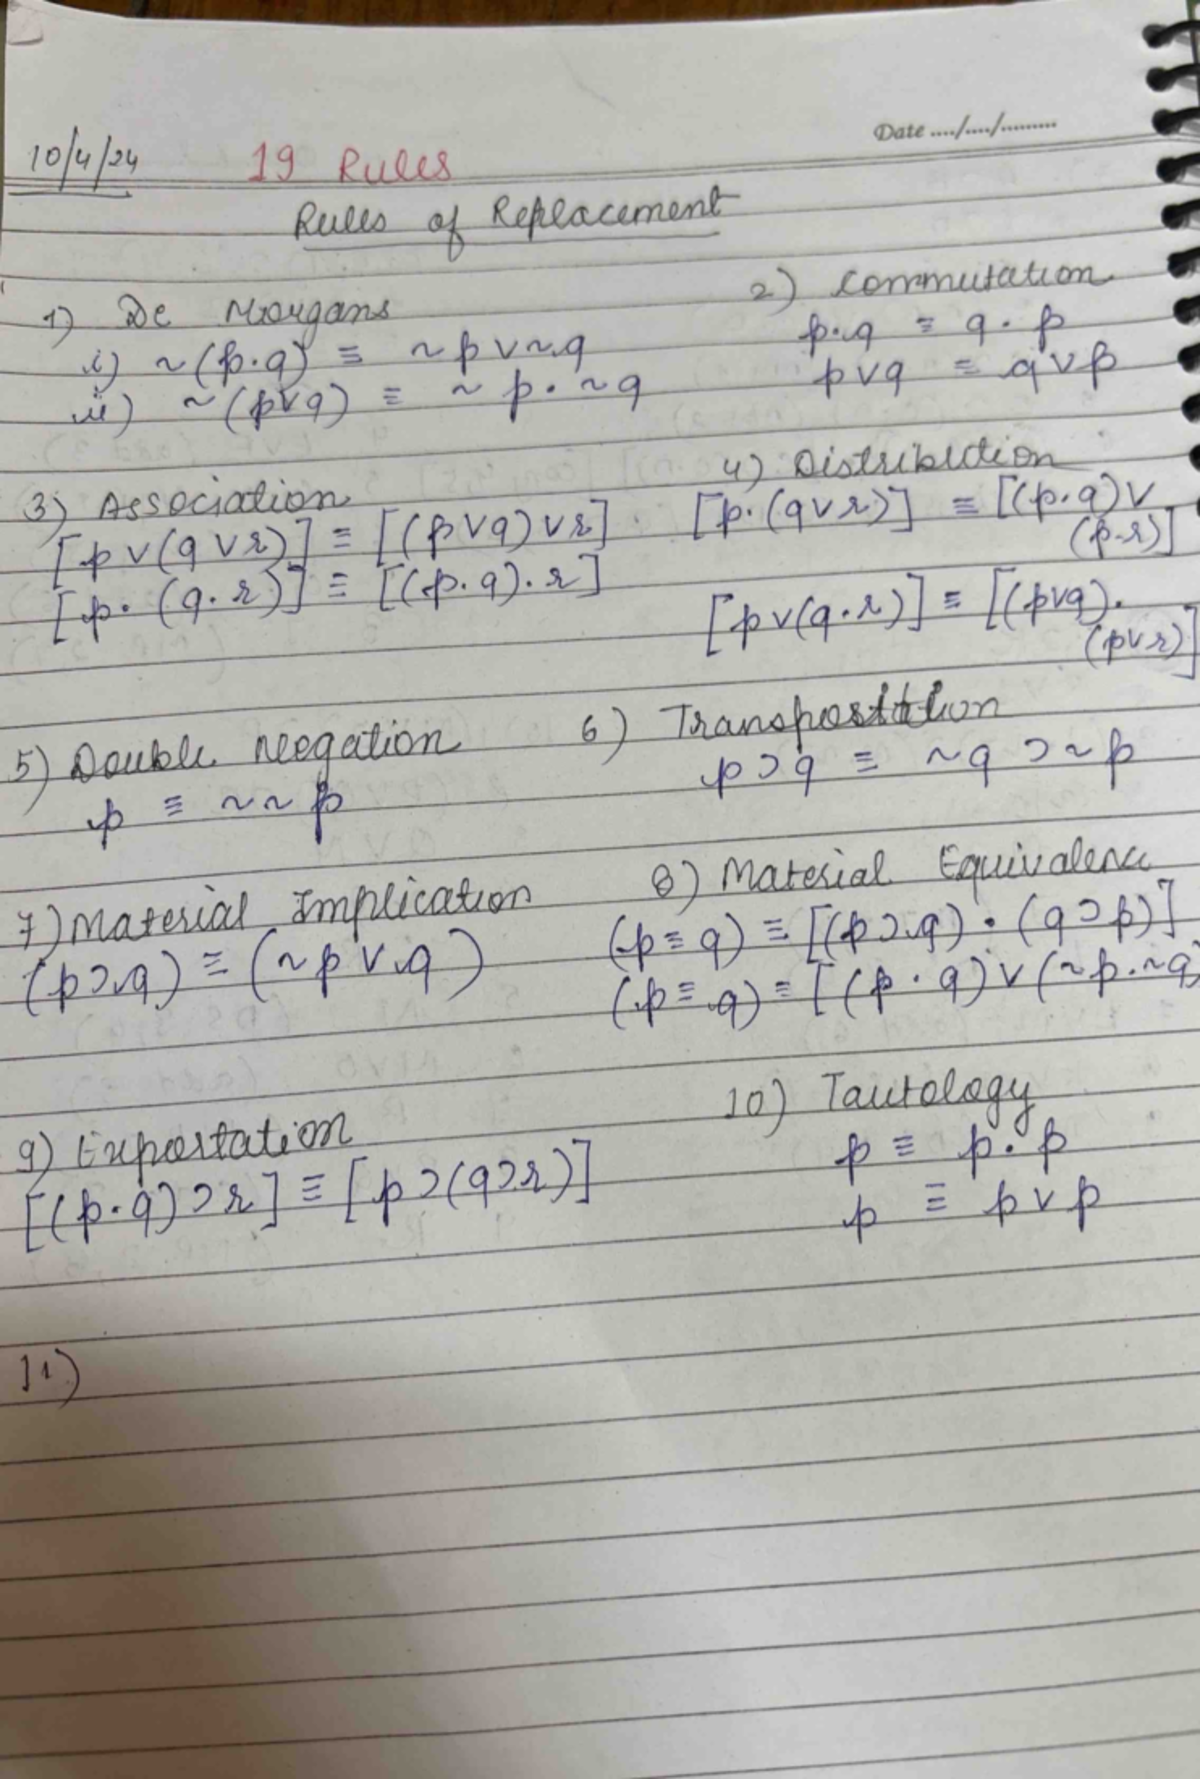 Date ..../..../.........
10/4/24 19 Rules
Rules of Replacement
1) De Morgans
i) ~(p·q) ≡ ~p∨~q
ii) ~(p∨q) ≡ ~p·~q
2) Commutation
p·q ≡ q·p
p∨q ≡ q∨p
3) Association
[p∨(q∨r)] ≡ [(p∨q)∨r]
[p·(q·r)] ≡ [(p·q)·r]
4) Distribution
[p·(q∨r)] ≡ [(p·q)∨
(p·r)]
[p∨(q·r)] ≡ [(p∨q)·
(p∨r)]
5) Double Negation
p ≡ ~~p
6) Transposition
p⊃q ≡ ~q⊃~p
7) Material Implication
(p⊃q) ≡ (~p∨q)
8) Material Equivalence
(p≡q) ≡ [(p⊃q)·(q⊃p)]
(p≡q) ≡ [(p·q)∨(~p·~q)
9) Exportation
[(p·q)⊃r] ≡ [p⊃(q⊃r)]
10) Tautology
p ≡ p·p
p ≡ p∨p
11)